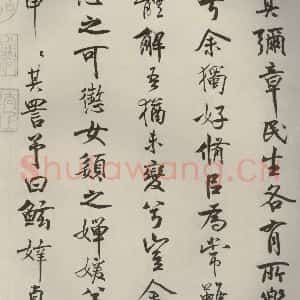 其彌章民生各有所樂
兮余獨好脩㠯為常雖
體解吾猶未變兮豈余
心之可懲女嬃之嬋媛兮
申〻其詈予曰鮌婞直
Shufawang.cn